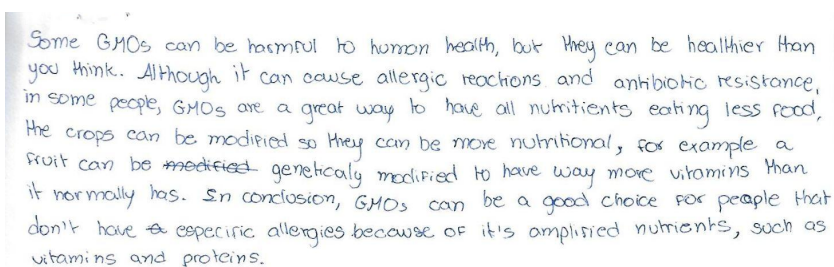 Some GMOs can be harmful to human health, but they can be healthier than
you think. Although it can cause allergic reactions and antibiotic resistance,
in some people, GMOs are a great way to have all nutritients eating less food,
the crops can be modified so they can be more nutritional, for example a
fruit can be medified geneticaly modified to have way more vitamins than
it normally has. In conclusion, GMOs can be a good choice for people that
don't have a especific allergies because of it's amplified nutrients, such as
vitamins and proteins.